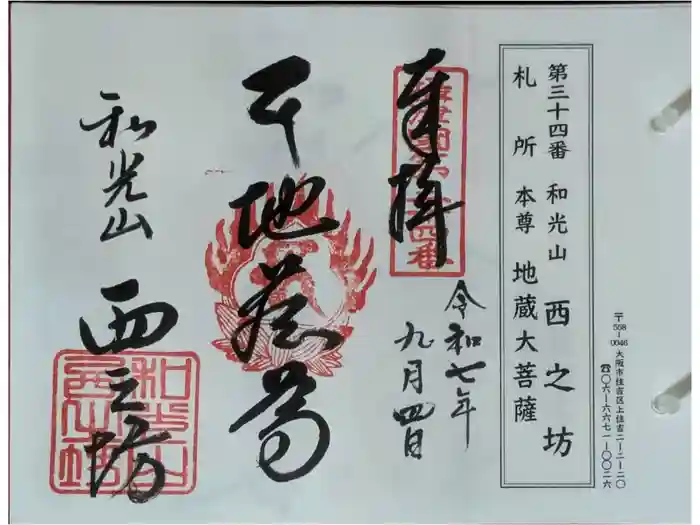 〒558-0046 大阪市住吉区上住吉二-二-二〇
☎〇六-六六七一-〇〇二六
第三十四番 和光山 西之坊
札所 本尊 地蔵大菩薩
奉拝
令和七年
九月四日
地蔵尊
和光山 西之坊